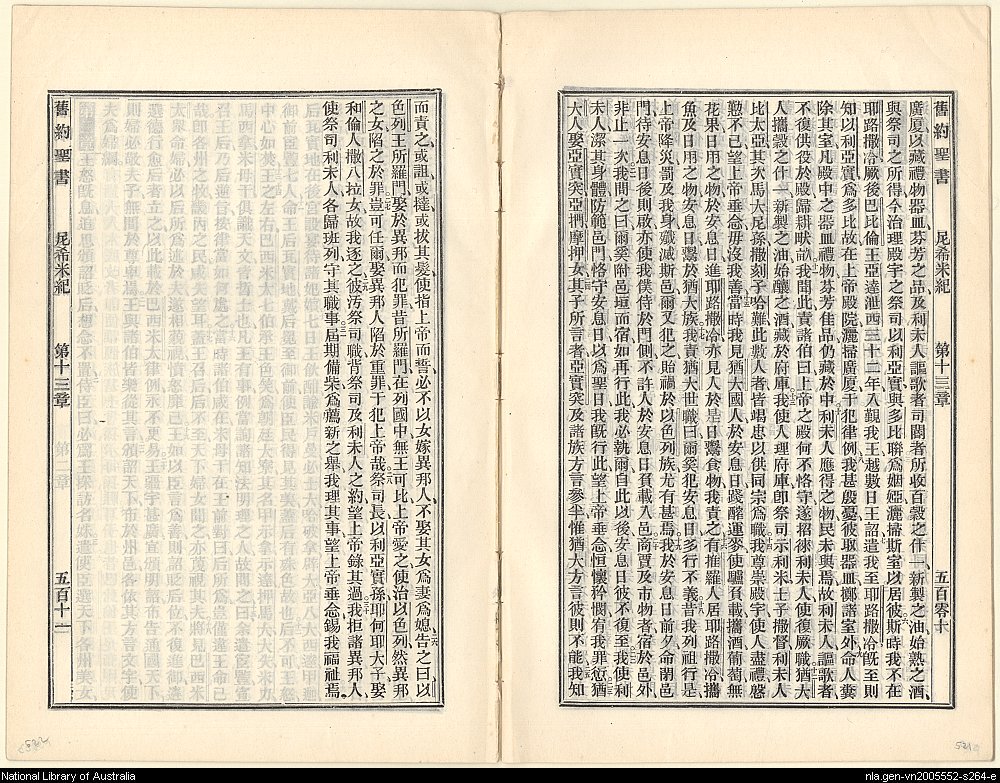 舊約聖書 尼希米紀 第十三章 五百零十
廣廈以藏禮物器皿芬芳之品及利未人謳歌者司閽者所收百穀之什一新製之油始熟之酒
與祭司之所得今治理殿宇之祭司以利亞實與多比聯爲姻婭灑掃斯室以居彼斯時我不在
耶路撒冷厥後巴比倫王亞達泄西三十二年入覲我王越數日王詔遣我至耶路撒冷既至則
知以利亞實爲多比故在上帝殿院灑掃廣廈干犯律例我甚殷憂彼取器皿擲諸室外命人糞
除其室凡殿中之器皿禮物芬芳佳品仍藏於中利未人應得之物民未與焉故利未人謳歌者
不復供役於殿歸耕畎畝我聞此責諸伯曰上帝之殿何不恪守遂招徠利未人使復厥職猶大
人攜穀之什一新製之油始釀之酒藏於府庫我使人理府庫即祭司示利米士子撒督利未人
比太亞其次馬大尼孫撒刻子哈難此數人者皆竭忠以供同宗爲職我尊崇殿宇使人盡禮罄
懃不已望上帝垂念毋沒我善當時我見猶大國人於安息日踐醡運麥使驢負載攜酒葡萄無
花果日用之物於安息日進耶路撒冷亦見人於是日鬻食物我責之有推羅人居耶路撒冷攜
魚及日用之物安息日鬻於猶大族我責猶大世職曰爾奚犯安息日多行不義昔我列祖行是
上帝降災罰及我身殲滅斯邑而爾又犯之貽禍於以色列族尤有甚焉我於安息日前夕命閉邑
門待安息日後則啟亦使我僕侍於門側不許人於安息日負載入邑商賈及市物者宿於邑外
非止一次我間之曰爾奚附邑垣而宿如再行此我必執爾自此以後安息日彼不復至我使利
未人潔其身體防範邑門恪守安息日以爲聖日我既行此望上帝垂念恒懷矜憫宥我罪愆猶
大人娶亞實突亞捫摩押女其子所言者亞實突及諸族方言參半惟猶大方言彼則不能我知
而責之或詛或撻或拔其髮使指上帝而誓必不以女嫁異邦人不娶其女爲妻爲媳告之曰以
色列王所羅門娶於異邦而犯罪昔所羅門在列國中無王可比上帝愛之使治以色列然異邦
之女陷之於罪豈可任爾娶異邦人陷於重罪干犯上帝哉祭司長以利亞實孫耶何耶大子娶
和倫人撒八拉女故我逐之彼污祭司職背祭司及利未人之約望上帝錄其過我拒諸異邦人
使祭司利未人各歸班列守其職事屆期備柴爲薦新之舉我理其事望上帝垂念錫我福祉焉
舊約聖書 尼希米紀 第十三章 五百十一
National Library of Australia
nla.gen-vn2005552-s264-e